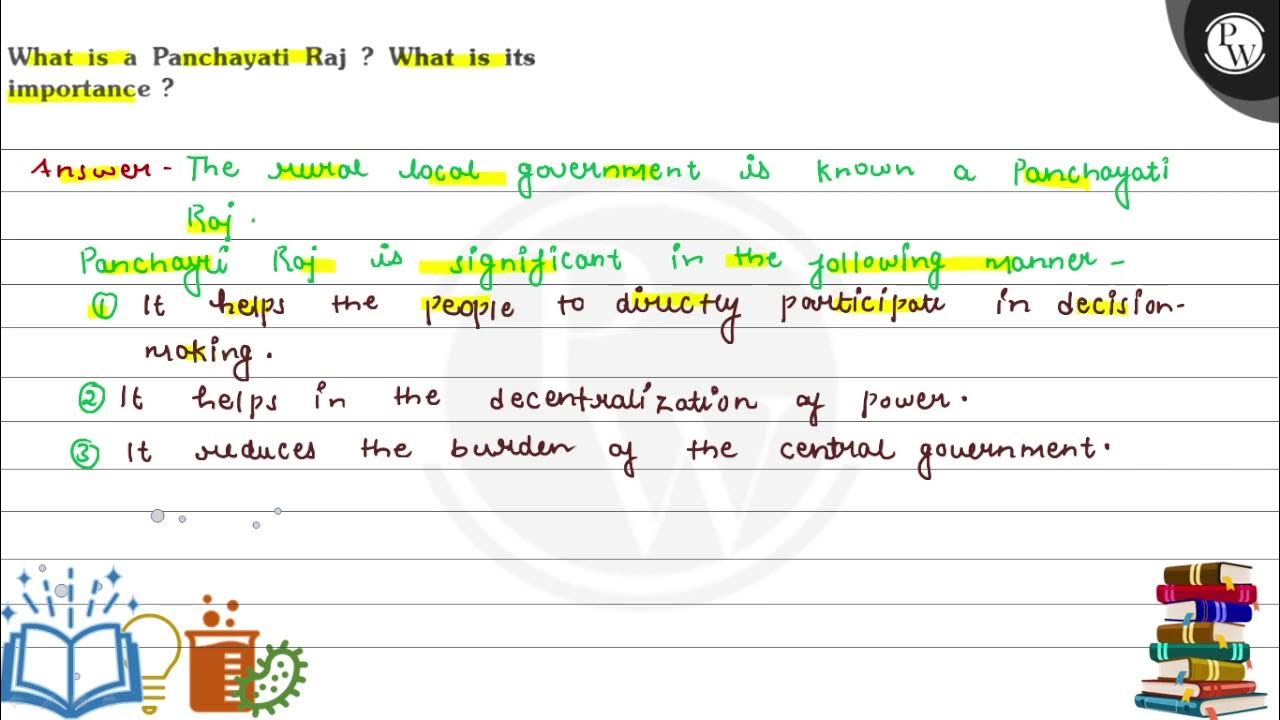 What is a Panchayati Raj ? What is its
importance ?
PW
Answer - The rural local government is known a Panchayati
Raj .
Panchayti Raj is significant in the following manner -
① It helps the people to directly participate in decision-
making .
② It helps in the decentralization of power .
③ It reduces the burden of the central government .